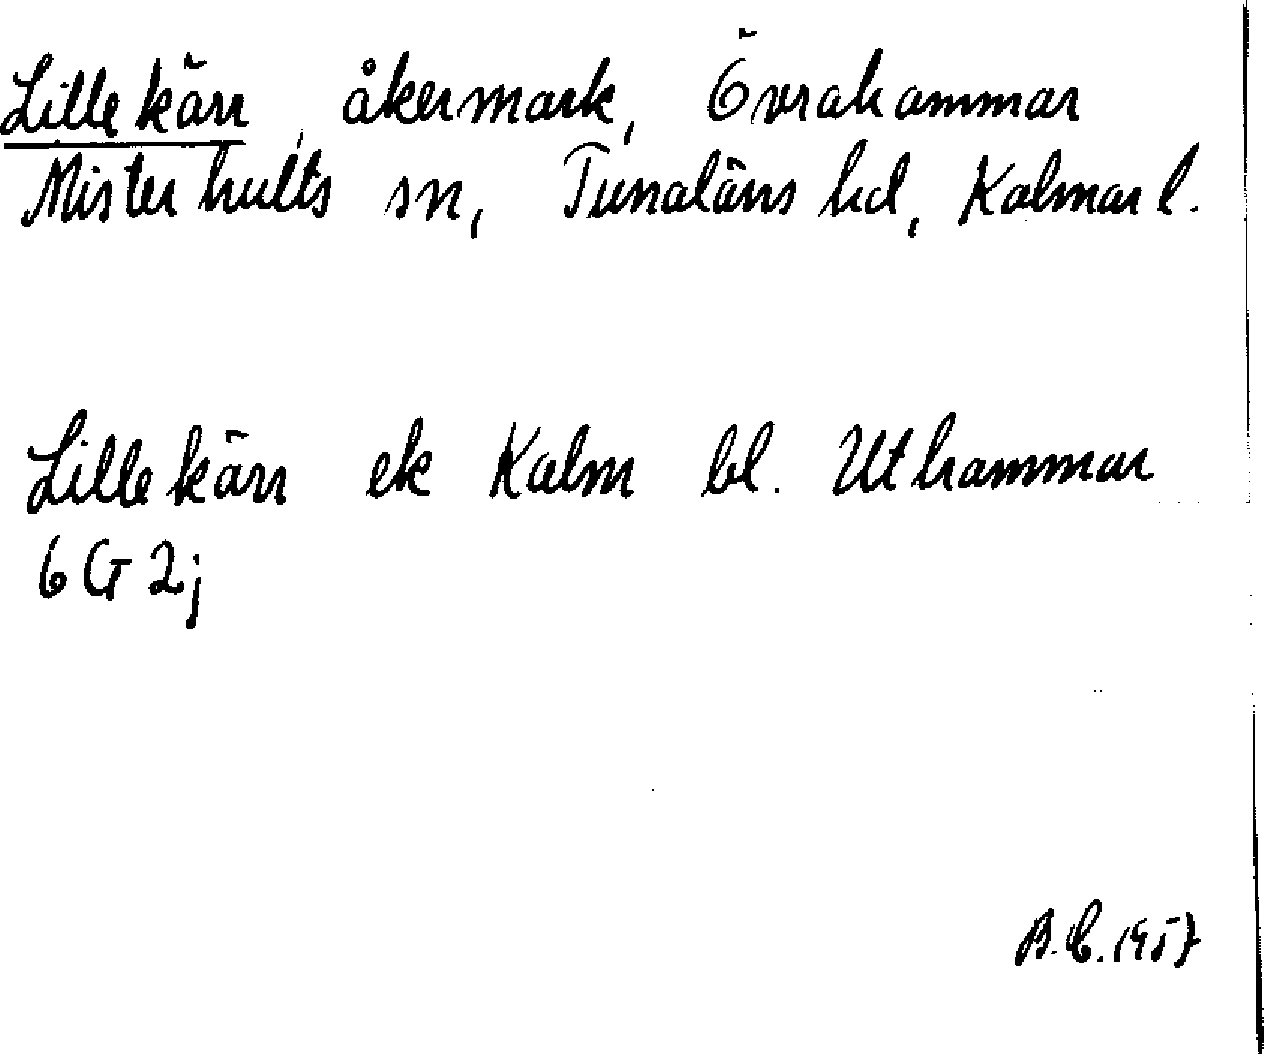 Lillekärr, åkermark, Övrahammar
Misterhults sn, Tunaläns hd, Kalmar l.
Lillekärr ek Kalm bl. Uthammar
6G 2j
B.C. 1957